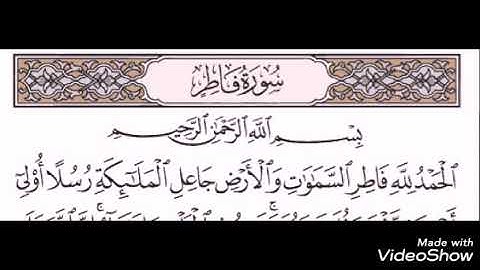 سُورَةُ فَاطِرٍ
بِسْمِ ٱللَّهِ ٱلرَّحْمَٰنِ ٱلرَّحِيمِ
ٱلْحَمْدُ لِلَّهِ فَاطِرِ ٱلسَّمَٰوَٰتِ وَٱلْأَرْضِ جَاعِلِ ٱلْمَلَٰٓئِكَةِ رُسُلًا أُو۟لِىٓ
Made with
VideoShow